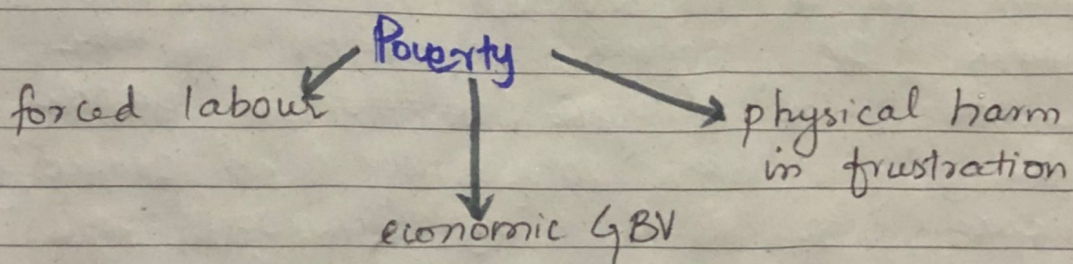 Poverty
forced labour
physical harm
in frustration
economic GBV